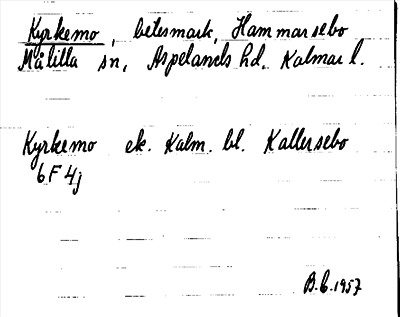 Kyrkemo, betesmark, Hammarsebo
Målilla sn, Aspelands hd. Kalmar l.
Kyrkemo ek. Kalm. bl. Kallersebo
6F4j
B.C. 1957